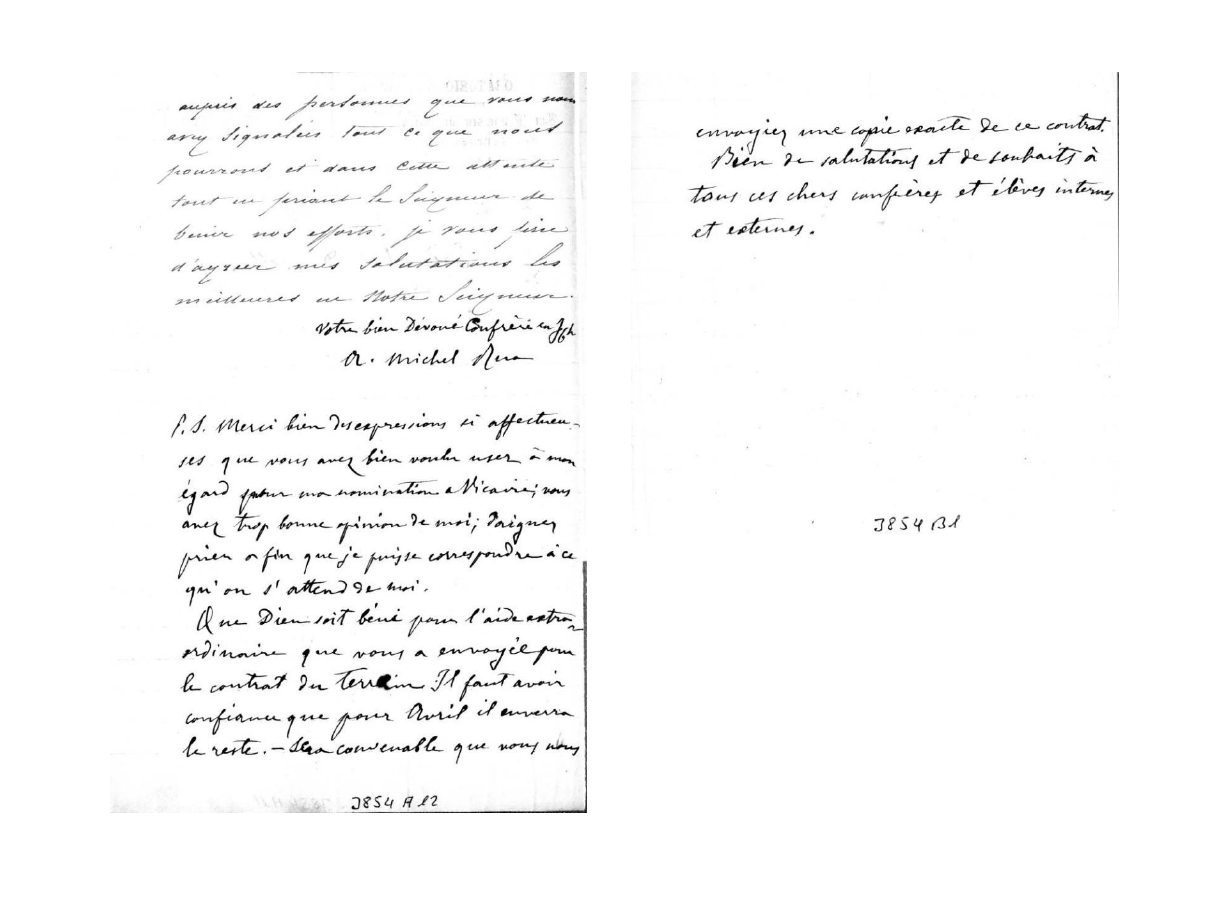 auprès des personnes que vous nous
avez signalées tout ce que nous
pourrons et dans cette attente
tout en priant le Seigneur de
benir nos efforts, je vous prie
d'agréer mes salutations les
meilleures en Notre Seigneur.
Votre bien Dévoué Confrère en
Michel Rua
P.S. Merci bien des expressions si affectueu-
ses que vous avez bien voulu user à mon
égard pour ma nomination a Vicaire; vous
avez trop bonne opinion de moi; daignez
prier afin que je puisse correspondre à ce
qu'on s'attend de moi.
Que Dieu soit béni pour l'aide extra-
ordinaire que vous a envoyée pour
le contrat du terrain. Il faut avoir
confiance que pour Avril il enverra
le reste. – Sera convenable que vous nous
3854 A 12
envoyiez une copie exacte de ce contrat.
Bien de salutations et de souhaits à
tous ces chers confrères et élèves internes
et externes.
3854 B1